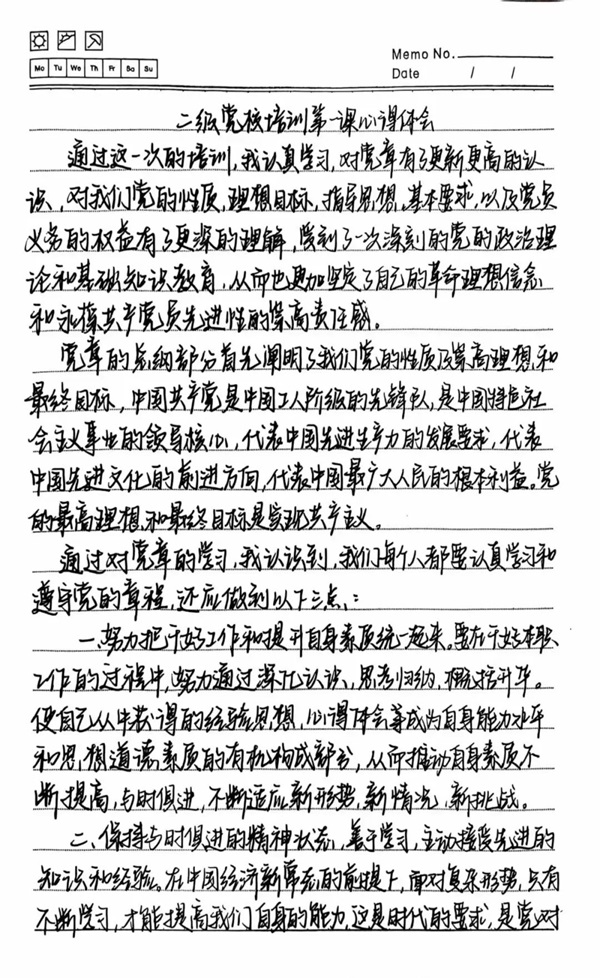 Memo No.
Mo Tu We Th Fr Sa Su
Date / /
二级党校培训第一课心得体会
通过这一次的培训,我认真学习,对党章有了更新更高的认
识,对我们党的性质,理想目标,指导思想,基本要求,以及党员
义务的权益有了更深的理解,受到了一次深刻的党的政治理
论和基础知识教育,从而也更加坚定了自己的革命理想信念
和永葆共产党员先进性的崇高责任感。
党章的总纲部分首先阐明了我们党的性质及崇高理想和
最终目标,中国共产党是中国工人阶级的先锋队,是中国特色社
会主义事业的领导核心,代表中国先进生产力的发展要求,代表
中国先进文化的前进方向,代表中国最广大人民的根本利益。党
的最高理想和最终目标是实现共产主义。
通过对党章的学习,我认识到,我们每个人都要认真学习和
遵守党的章程,还应做到以下三点:
一、努力把干好工作和提升自身素质统一起来。要在干好本职
工作的过程中,努力通过深化认识、思考归纳,概括升华。
使自己从中获得的经验思想,心得体会等成为自身能力水平
和思想道德素质的有机构成部分,从而推动自身素质不
断提高,与时俱进,不断适应新形势,新情况,新挑战。
二、保持与时俱进的精神状态,善于学习,主动接受先进的
知识和经验。在中国经济新常态的前提下,面对复杂形势,只有
不断学习,才能提高我们自身的能力,这是时代的要求,是党对